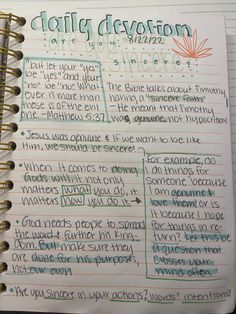 daily devotion
8/22/22
are you sincere?
"but let your "yes"
be "yes" and your "no"
be "no". What
ever is more than
these is of the evil
one" - Matthew 5:37
The Bible talks about Timothy
having a "sincere faith"
- He meant that Timothy
was genuine, not hypocritical
• Jesus was genuine & if we want to be like
Him, we should be sincere!
• When it comes to doing
Gods will it not only
matters what you do, it
matters how you do it.
• God needs people to spread
the word & further his king-
dom. But make sure they
are done for his purpose,
not our own
For example, do
do things for
someone because
I am genuine &
love them? or is
it because I hope
for things in re-
turn? Let this be
a question that
crosses your
mind often.
• Are you sincere in your actions? words? intentions?